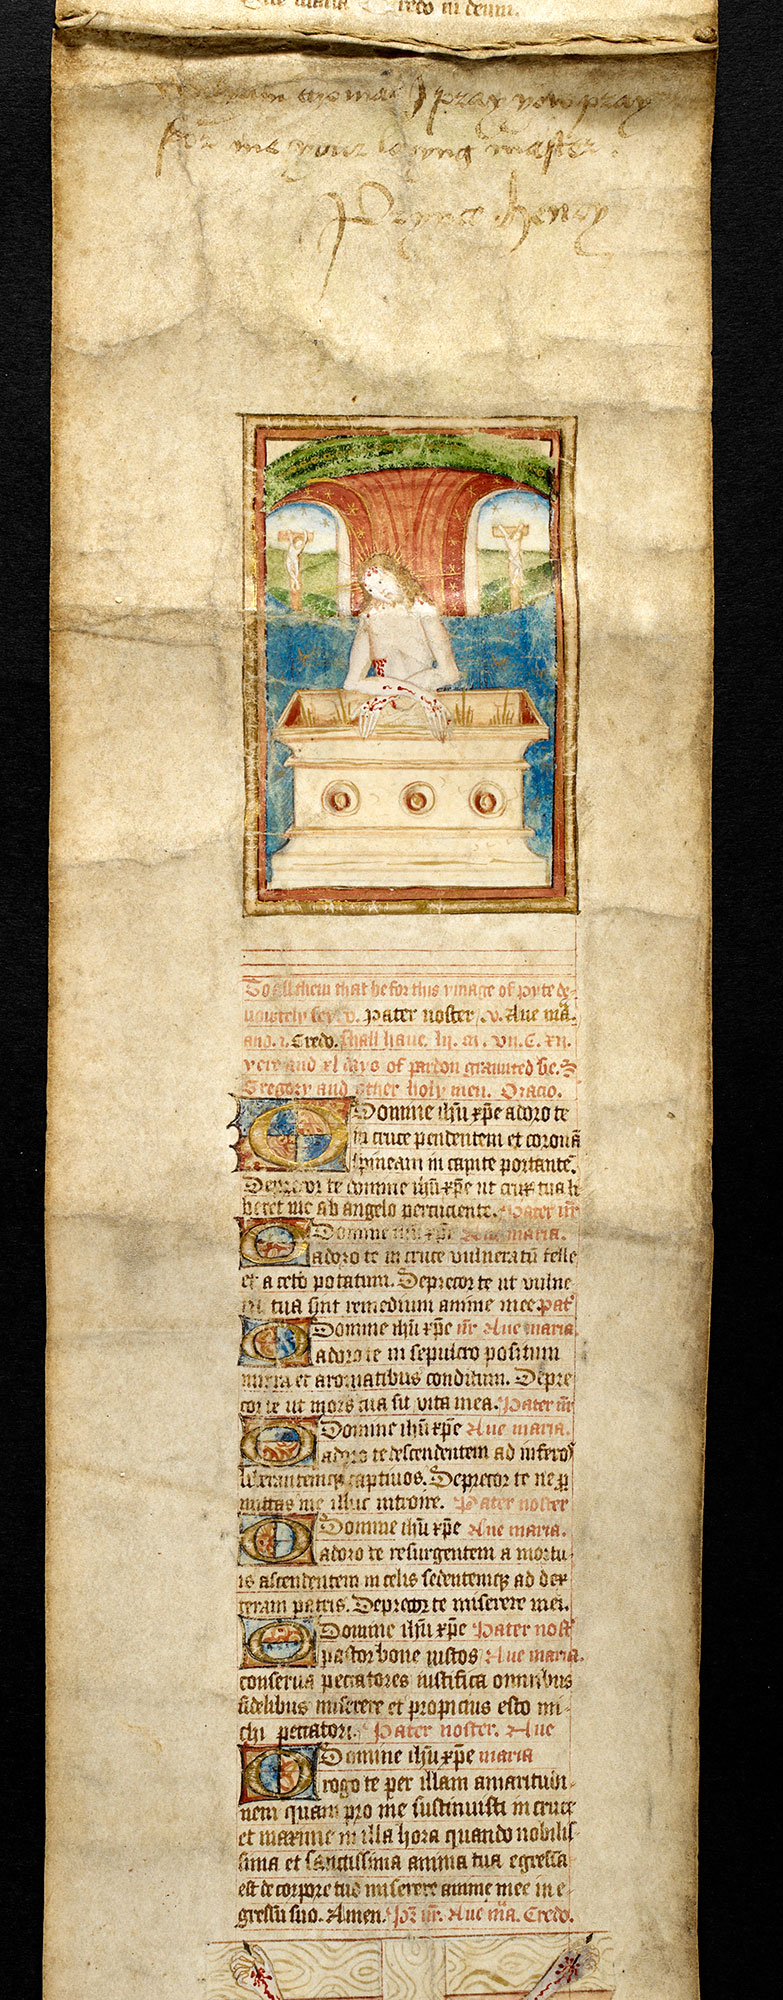 Aue maria Credo in deum.
Wylliam thomas I pray yow pray
for me your lovyng master
Prynce henry
To all them that before this ymage of pyte de-
uowtely sey .v. Pater noster .v. Aue ma.
and .i. Credo. shall haue. lii. m. vii. C. xii.
yere and xl days of pardon graunted be S.
Gregory and other holy men. Oracio.
O Domine ihu xpe adoro te
in cruce pendentem et corona
spineam in capite portante.
Deprecor te domine ihu xpe ut crux tua li
beret me ab angelo percuciente. Pater nr
O Domine ihu xpe Aue maria.
adoro te in cruce vulneratu felle
et aceto potatum. Deprecor te ut vulne
ra tua sint remedium anime mee Pat
O Domine ihu xpe nr Aue maria.
adoro te in sepulcro positum
mirra et aromatibus conditum. Depre
cor te ut mors tua sit vita mea. Pater nr
O Domine ihu xpe Aue maria.
adoro te descendentem ad inferos
liberantemq captiuos. Deprecor te ne per
mittas me illuc introire. Pater noster
O Domine ihu xpe Aue maria.
adoro te resurgentem a mortu-
is ascendentem in celis sedentemq ad dex
teram patris. Deprecor te miserere mei.
O Domine ihu xpe Pater nost
pastor bone iustos Aue maria.
conserua peccatores iustifica omnibus
fidelibus miserere et propicius esto mi-
chi peccatori. Pater noster. Aue
O Domine ihu xpe maria
rogo te per illam amaritudi-
nem quam pro me sustinuisti in cruce
et maxime in illa hora quando nobilis-
sima et sanctissima anima tua egressa
est de corpore tuo miserere anime mee in e-
gressu suo. Amen. Pr nr. Aue ma. Credo.